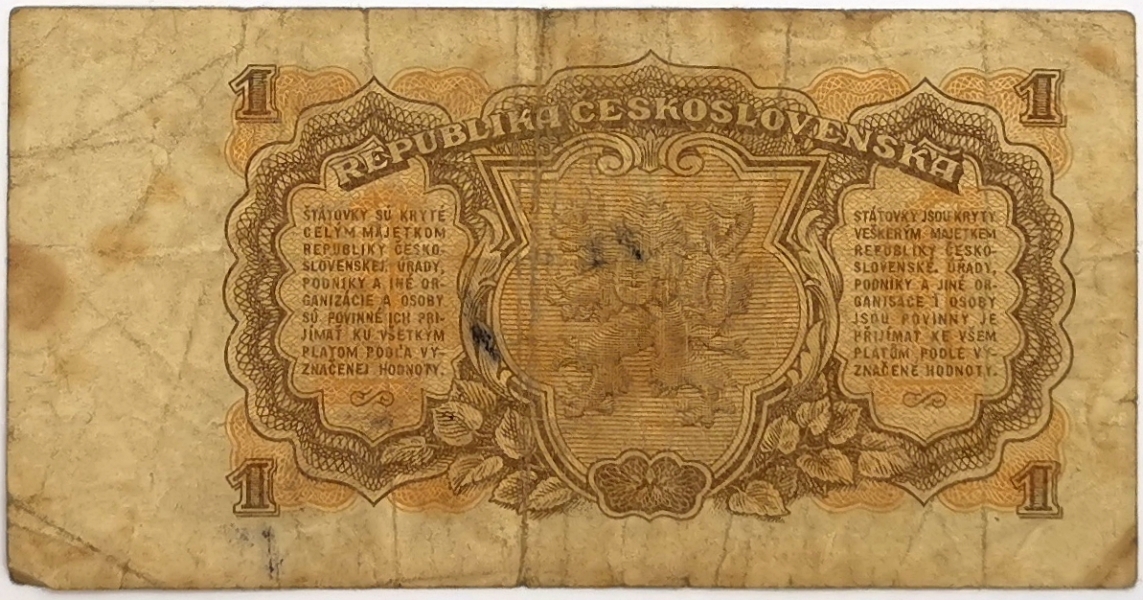 1
1
REPUBLIKA ČESKOSLOVENSKÁ
ŠTÁTOVKY SÚ KRYTÉ
CELÝM MAJETKOM
REPUBLIKY ČESKO-
SLOVENSKEJ. ÚRADY,
PODNIKY A INÉ OR-
GANIZÁCIE A OSOBY
SÚ POVINNÉ ICH PRI-
JÍMAŤ KU VŠETKÝM
PLATOM PODĽA VY-
ZNAČENEJ HODNOTY.
STÁTOVKY JSOU KRYTY
VEŠKERÝM MAJETKEM
REPUBLIKY ČESKO-
SLOVENSKÉ. ÚŘADY,
PODNIKY A JINÉ OR-
GANISACE I OSOBY
JSOU POVINNY JE
PŘIJÍMAT KE VŠEM
PLATŮM PODLE VY-
ZNAČENÉ HODNOTY.
1
1